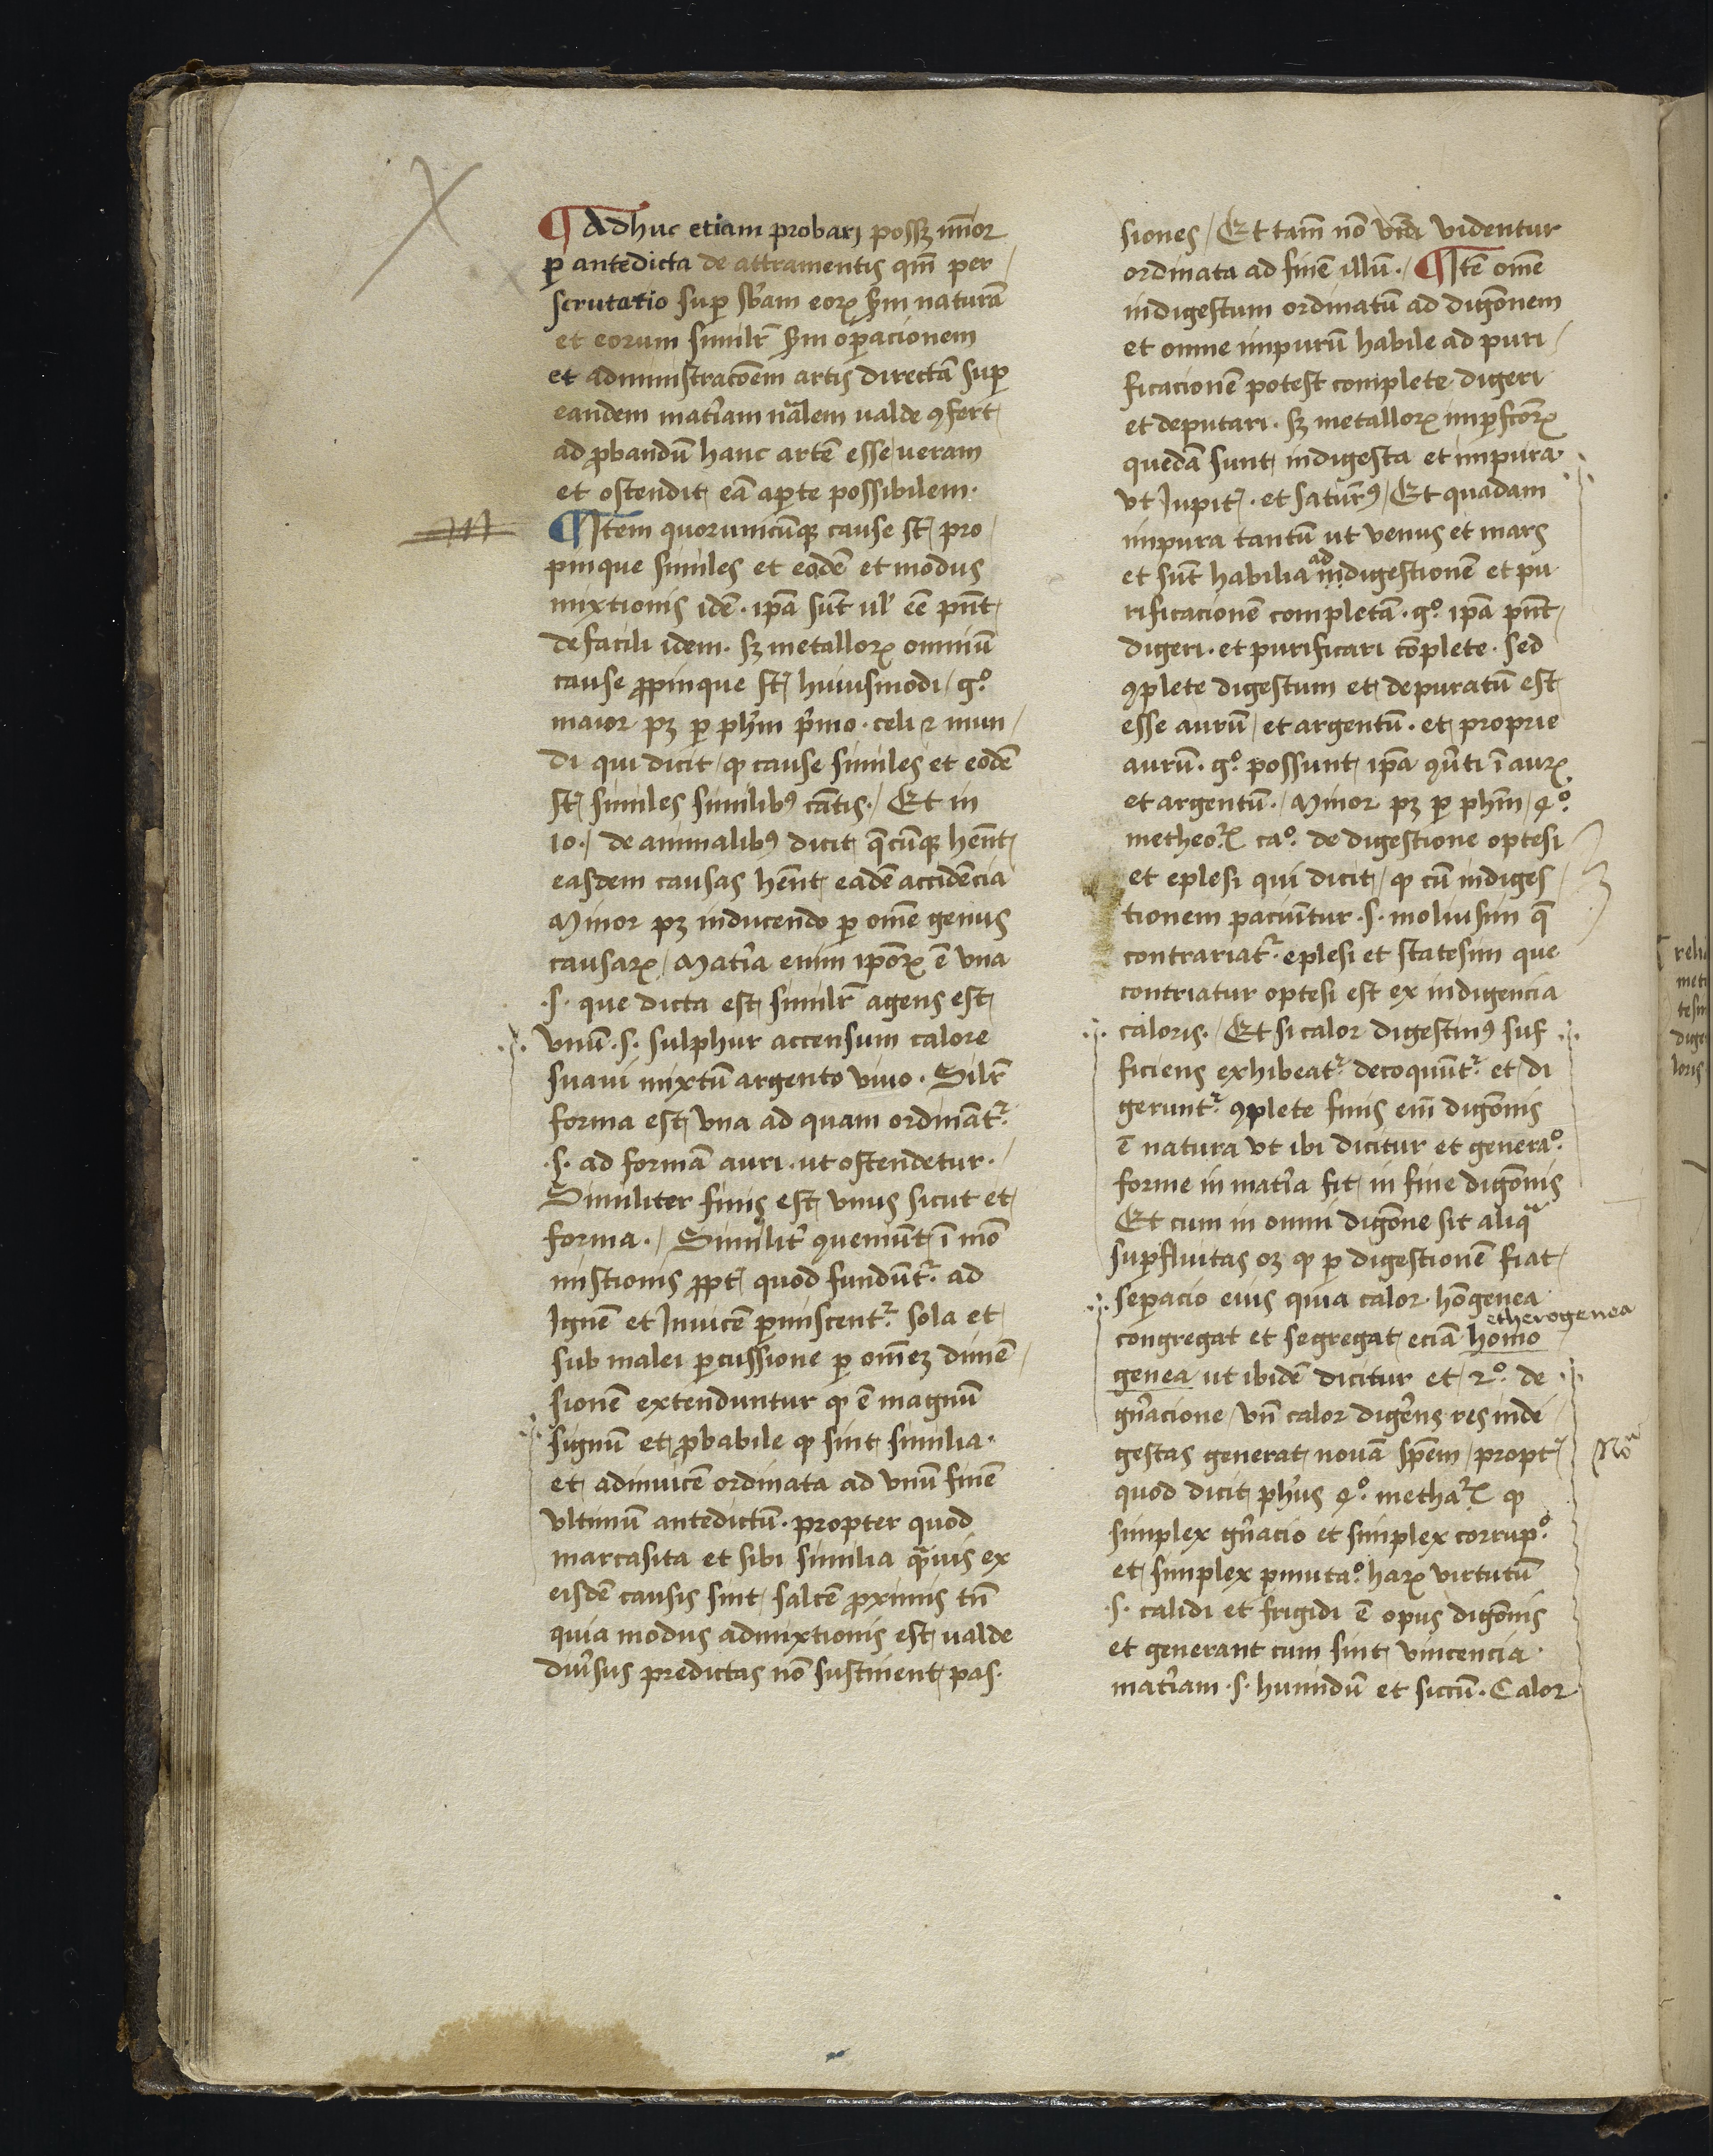 ¶ Adhuc etiam probarj possꝫ mīor
ꝑ antedicta de attramentis qm̄ per
scrutatio suꝑ sb̄am eoꝝ ẜm naturā
et eorum simil̄r ẜm oꝑacionem
et administrac̄oem artis directā suꝑ
eandem mat̄iam nālem ualde ꝯfert
ad ꝓbandū hanc artē esse ueram
et ostendit eā aꝑte possibilem·
¶ Item quorumcūqꝫ cause st̄ pro
pinque similes et eodē et modus
mixtionis idē · ip̄a sūt ul' eē pn̄t
de facili idem · sꝫ metalloꝝ omniū
cause ꝓpinque st̄ huiusmodi / gͦ
maior pꝫ ꝑ ph̄m p̄mo · celi ⁊ mun
di qui dicit / ꝙ cause similes et eodē
st̄ similes similibꝰ cātis · / Et in
10 · / de animalibꝰ dicit q̄cūqꝫ hēnt
easdem causas hēnt eadē accidēcia
Minor pꝫ inducendo ꝑ om̄e genus
causaꝝ / Mat̄ia enim ip̄oꝝ ē vna
·s· que dicta est simil̄r agens est
vnū ·s· sulphur accensum calore
suaui mixtū argento viuo · Sil̄r
forma est vna ad quam ordināt᷑
·s· ad formā auri · ut ostendetur ·
Similiter finis est vnus sicut et
forma · / Similit̄ ꝯueniūt ī mō
mistionis ꝓpt̄ quod fundūt᷑ ad
Ignē et Inuicē ꝑmiscent᷑ sola et
sub malei ꝑcussione ꝑ om̄eꝫ dimē
sionē extenduntur ꝙ ē magnū
signū et ꝓbabile ꝙ sint similia ·
et adinuicē ordinata ad vnū finē
vltimū antedictū · propter quod
marcasita et sibi similia q̄uis ex
eisdē causis sint saltē ꝓximis tn̄
quia modus admixtionis est ualde
diu̾sus predictas nō sustinent pas·
siones / Et tam̄ nō videntur
ordinata ad finē illū · / ¶ Itē om̄e
indigestum ordinatū ad diḡonem
et omne impurū habile ad puri
ficacionē potest complete digeri
et deputari · sꝫ metalloꝝ imꝑfc̄oꝝ
quedā sunt indigesta et impura
vt Iupit̄ · et saturnꝰ / Et quadam
impura tantū ut venus et mars
et sūt habilia ad indigestionē et pu
rificacionē completā · gͦ ip̄a pn̄t
digeri · et purificari cōplete · sed
ꝯplete digestum et depuratū est
esse aurū / et argentū · et proprie
aurū · gͦ possunt ip̄a ꝯu̾ti ī auꝝ
et argentū · / Minor pꝫ ꝑ ph̄m / 4ͦ
metheoꝝ caͦ de digestione optesi
et eplesi qui dicit / ꝙ cū indiges
tionem paciūntur ·s· moliusim q̄
contrariat᷑ eplesi et statesim que
contriatur optesi est ex indigencia
caloris · / Et si calor digestiuꝰ suf
ficiens exhibeat᷑ decoquūt᷑ et di
gerunt᷑ ꝯplete finis em̄ diḡonis
ē natura vt ibi dicitur et generaͦ
forme in mat̄ia fit in fine diḡonis
Et cum in omni diḡone sit aliqͣ
suꝑfluitas oꝫ ꝙ ꝑ digestionē fiat
seꝑacio eius quia calor hōgenea
etherogenea
congregat et segregat eciā homo
genea ut ibidē dicitur et 2ͦ de
gn̄acione / vn̄ calor dig̾ens res inde
gestas generat nouā sp̄em / propt̄
Noᵃ
quod dicit ph̄us 4ͦ methaꝝ ꝙ
simplex gn̄acio et simplex corrupͦ
et simplex ꝑmutaͦ haꝝ virtutū
·s· calidi et frigidi ē opus diḡonis
et generant cum sint vincencia
mat̄iam ·s· humidū et siccū · Calor